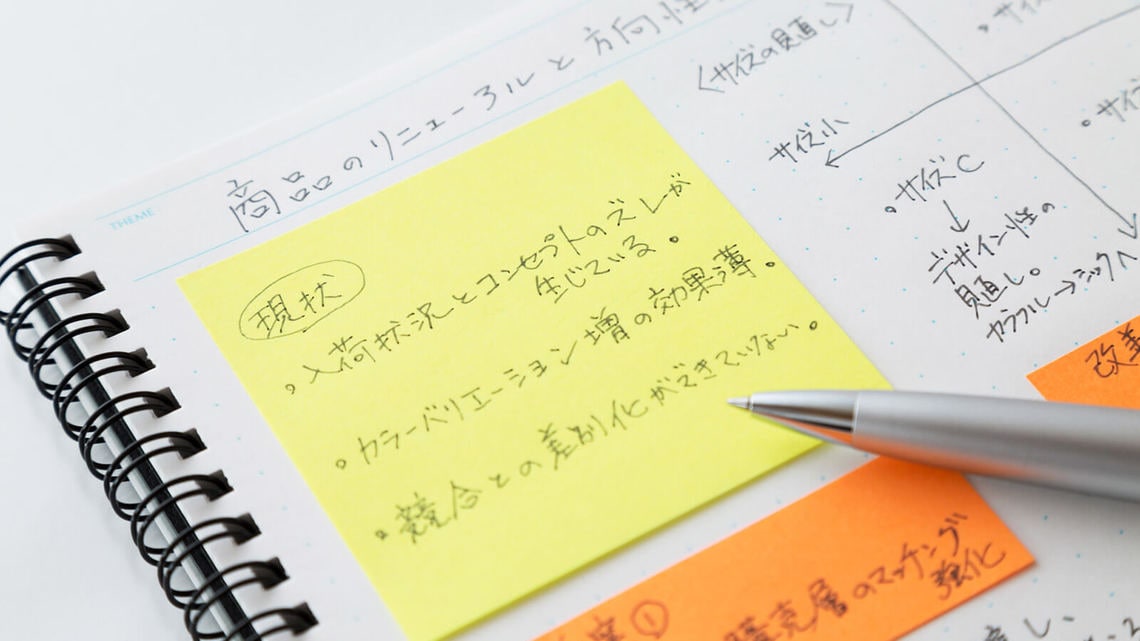 THEME
商品のリニューアルと方向性
<サイズの見直し>
サイズ小
・サイズC
↓
デザイン性の
見直し。
カラフル→シックへ
現状
・入荷状況とコンセプトのズレが
生じている。
・カラーバリエーション増の効果薄。
・競合との差別化ができていない。
改善
①
購売層のマッチング
強化